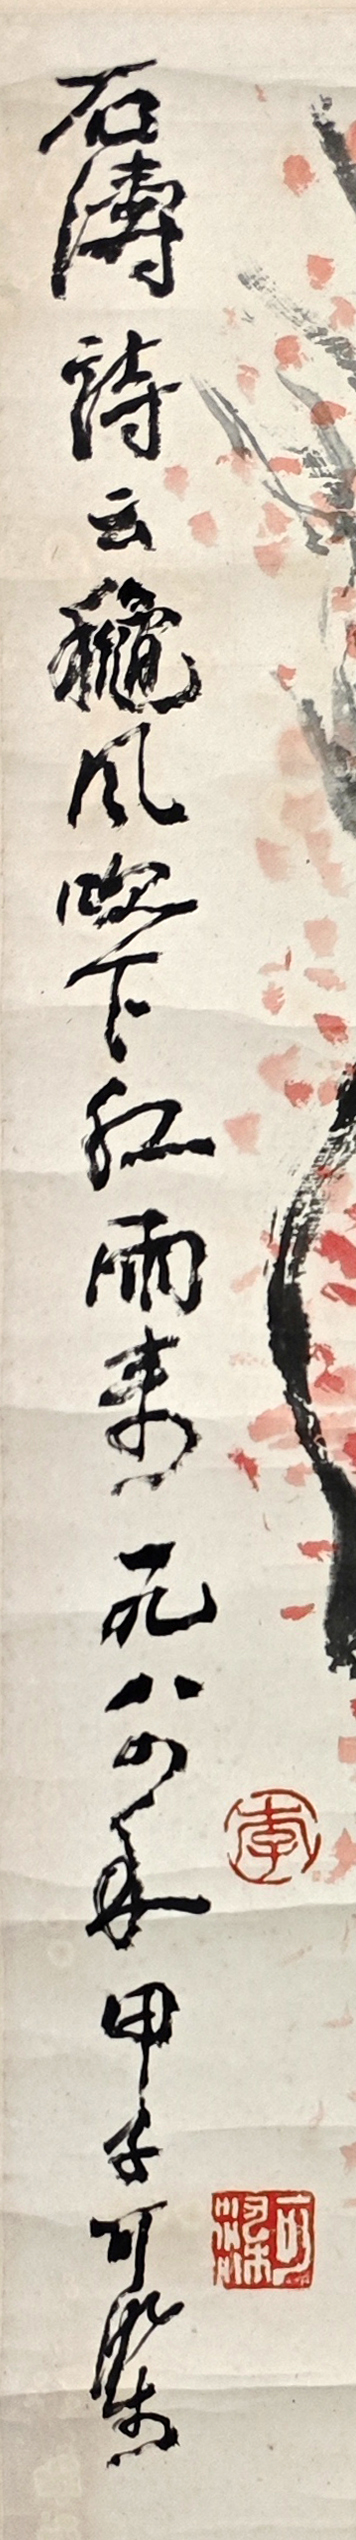 石濤詩云龝風吹下紅雨來一九八四年甲子可染
李
可染